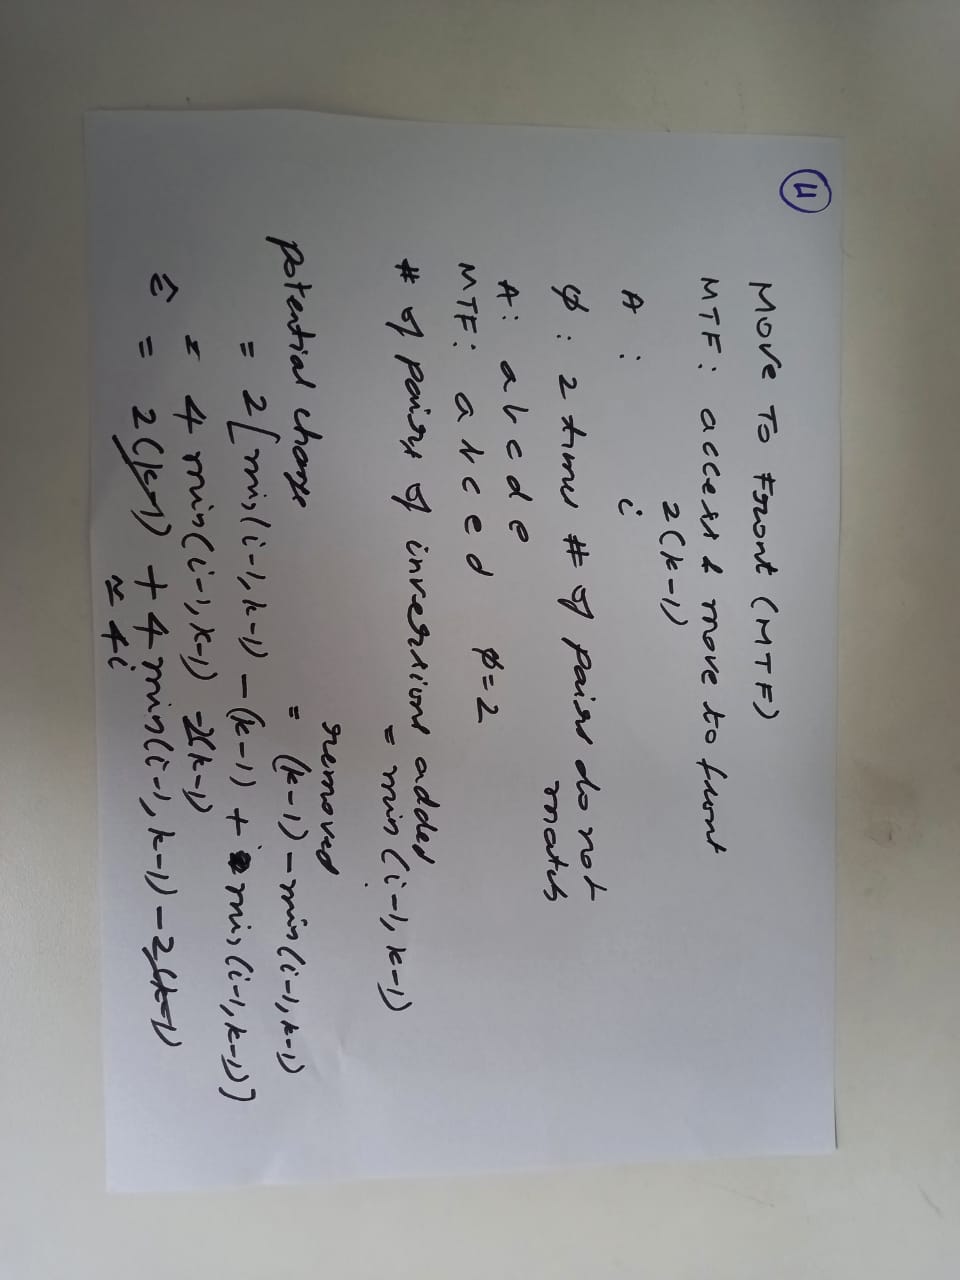 11
Move To Front (MTF)
MTF: access & move to front
2(k-1)
A : i
φ : 2 times # of pairs do not
match
A: a b c d e
MTF: a b c e d φ=2
# of pairs of inversions added
= min(i-1, k-1)
removed
= (k-1) - min(i-1, k-1)
potential change
= 2[min(i-1, k-1) - (k-1) + min(i-1, k-1)]
= 4 min(i-1, k-1) - 2(k-1)
ĉ = 2(k-1) + 4 min(i-1, k-1) - 2(k-1)
≈ 4i